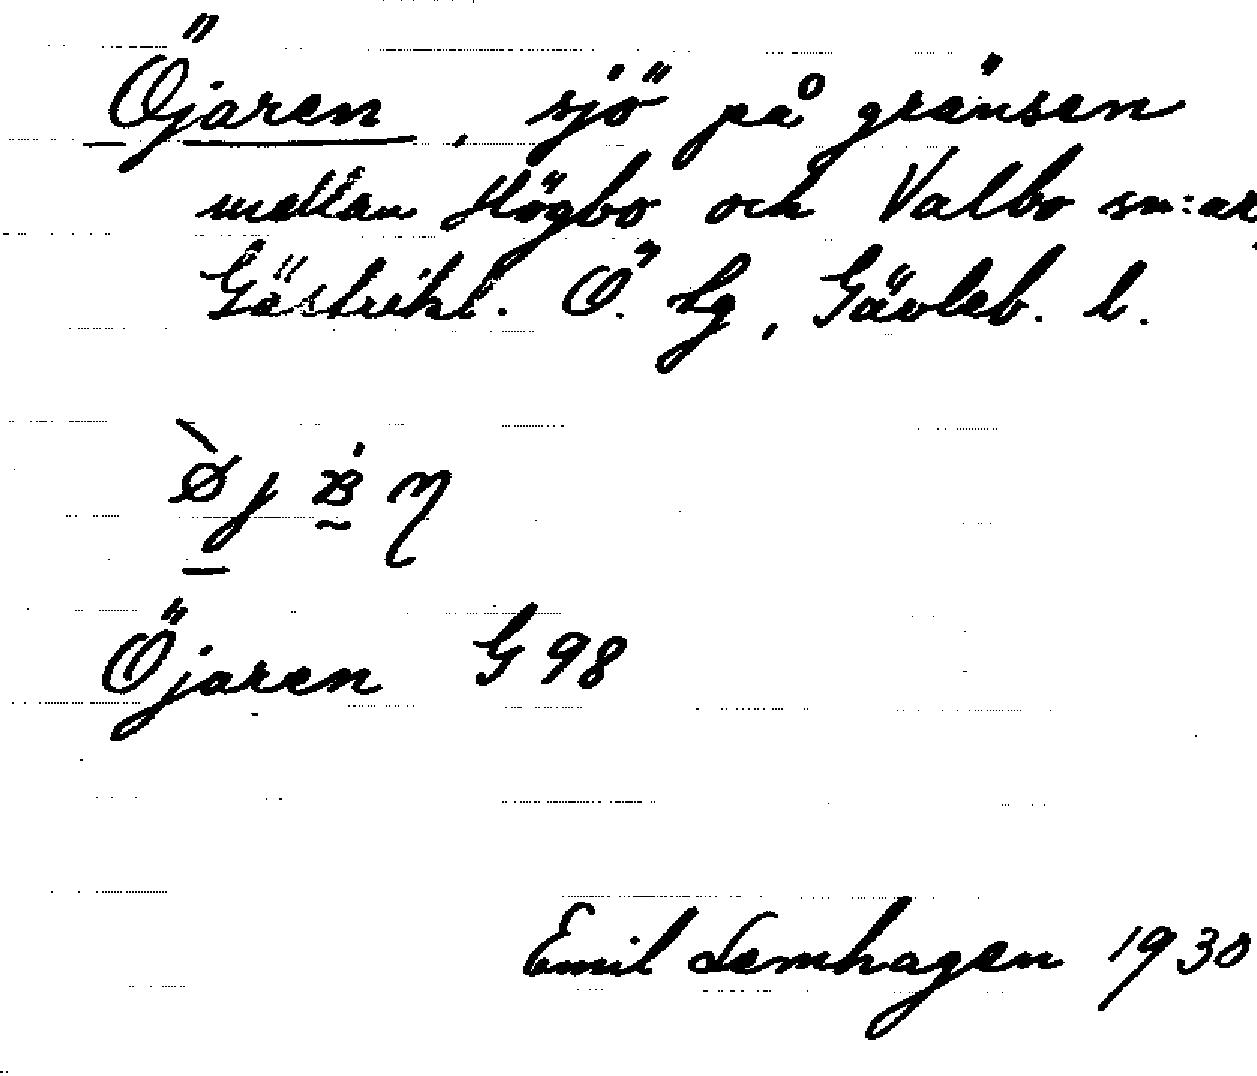 Öjaren, sjö på gränsen
mellan Högbo och Valbo sn:ar,
Gästrikl. Ö. Lg, Gävleb. l.
Öjaren G 98
Emil Lemhagen 1930